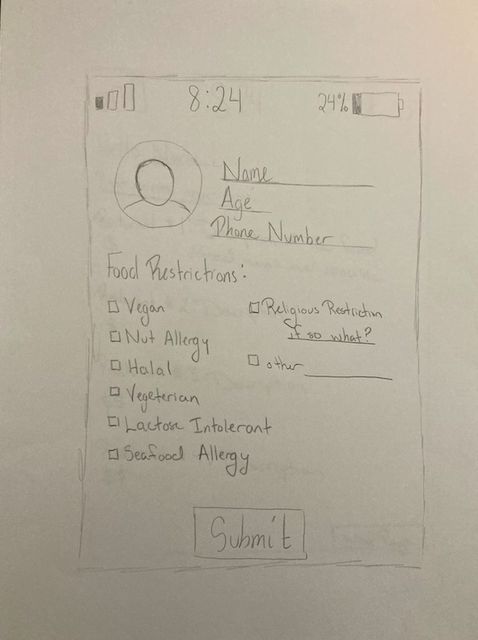 8:24 24%
Name
Age
Phone Number
Food Restrictions:
Vegan
Nut Allergy
Halal
Vegeterian
Lactose Intolerant
Seafood Allergy
Religious Restriction
if so what?
other
Submit